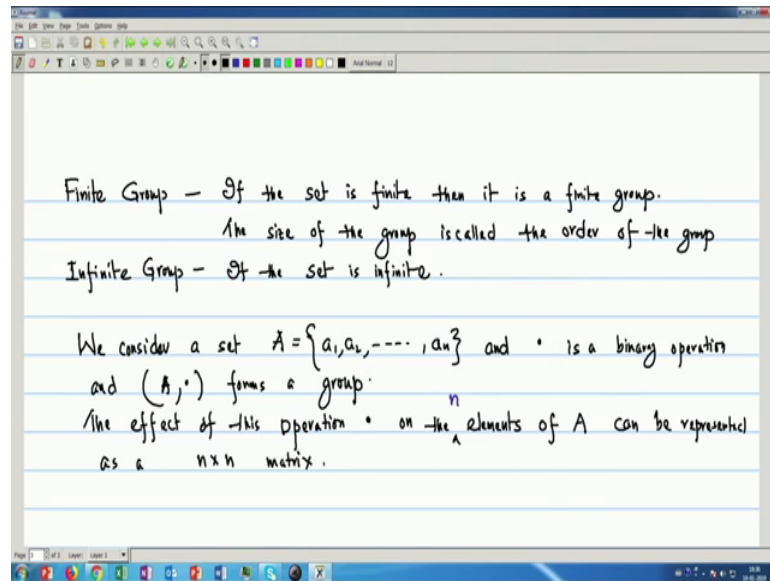 Journal
File Edit View Page Tools Options Help
Arial Normal 12
Finite Group - If the set is finite then it is a finite group.
The size of the group is called the order of the group
Infinite Group - If the set is infinite.
We consider a set A = {a1, a2, ----, an} and • is a binary operation
and (A, •) forms a group.
The effect of this operation • on the n elements of A can be represented
as a n×n matrix.
Page 3 of 3 Layer: Layer 1